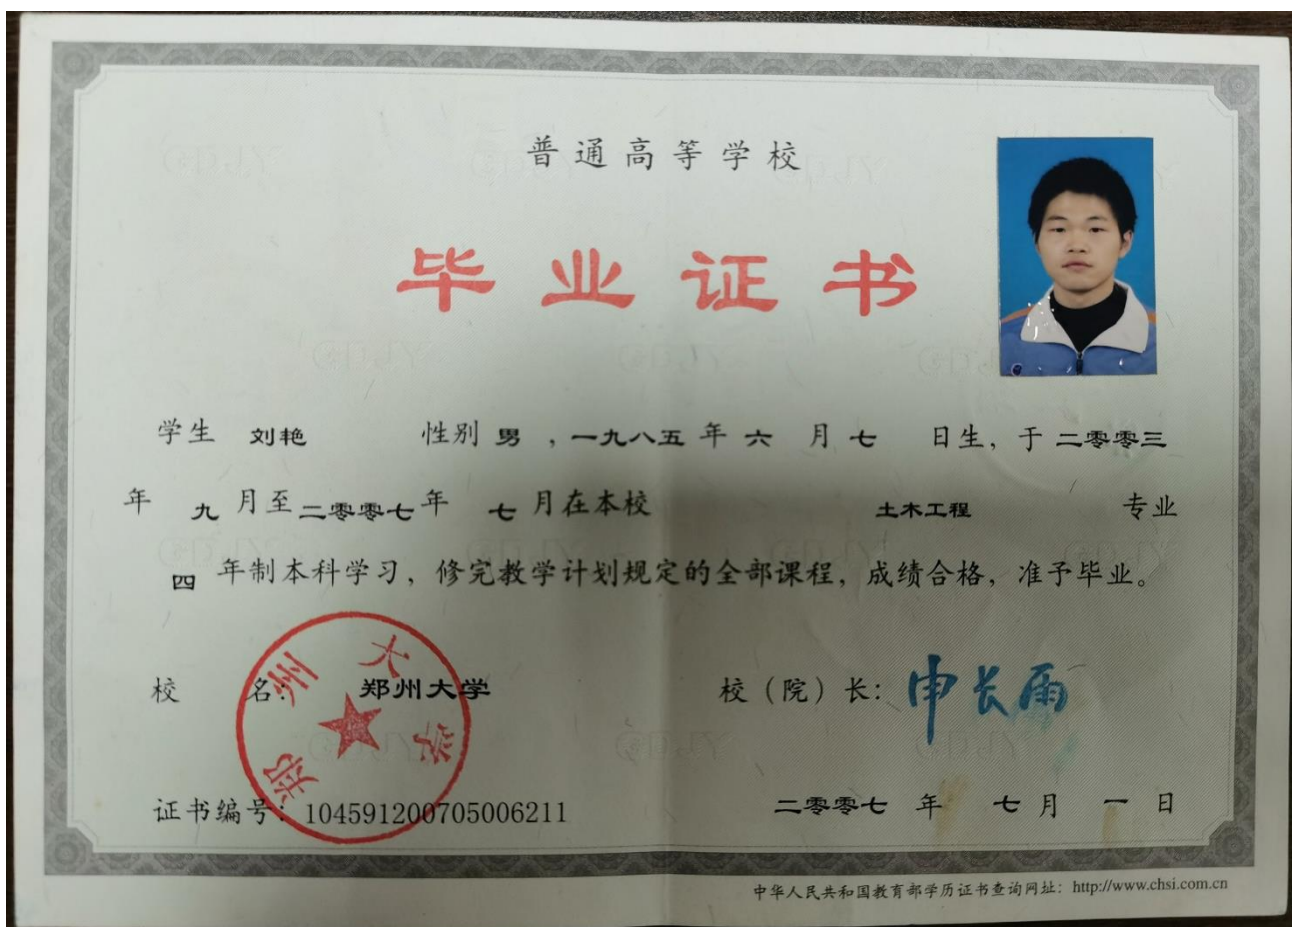 普通高等学校
毕业证书
学生 刘艳 性别 男 ，一九八五 年 六 月 七 日生，于 二零零三
年 九 月至 二零零七 年 七 月在本校 土木工程 专业
四 年制本科学习，修完教学计划规定的全部课程，成绩合格，准予毕业。
校 名：郑州大学 校（院）长：申长雨
郑州大学
证书编号：104591200705006211 二零零七 年 七 月 一 日
中华人民共和国教育部学历证书查询网址：http://www.chsi.com.cn